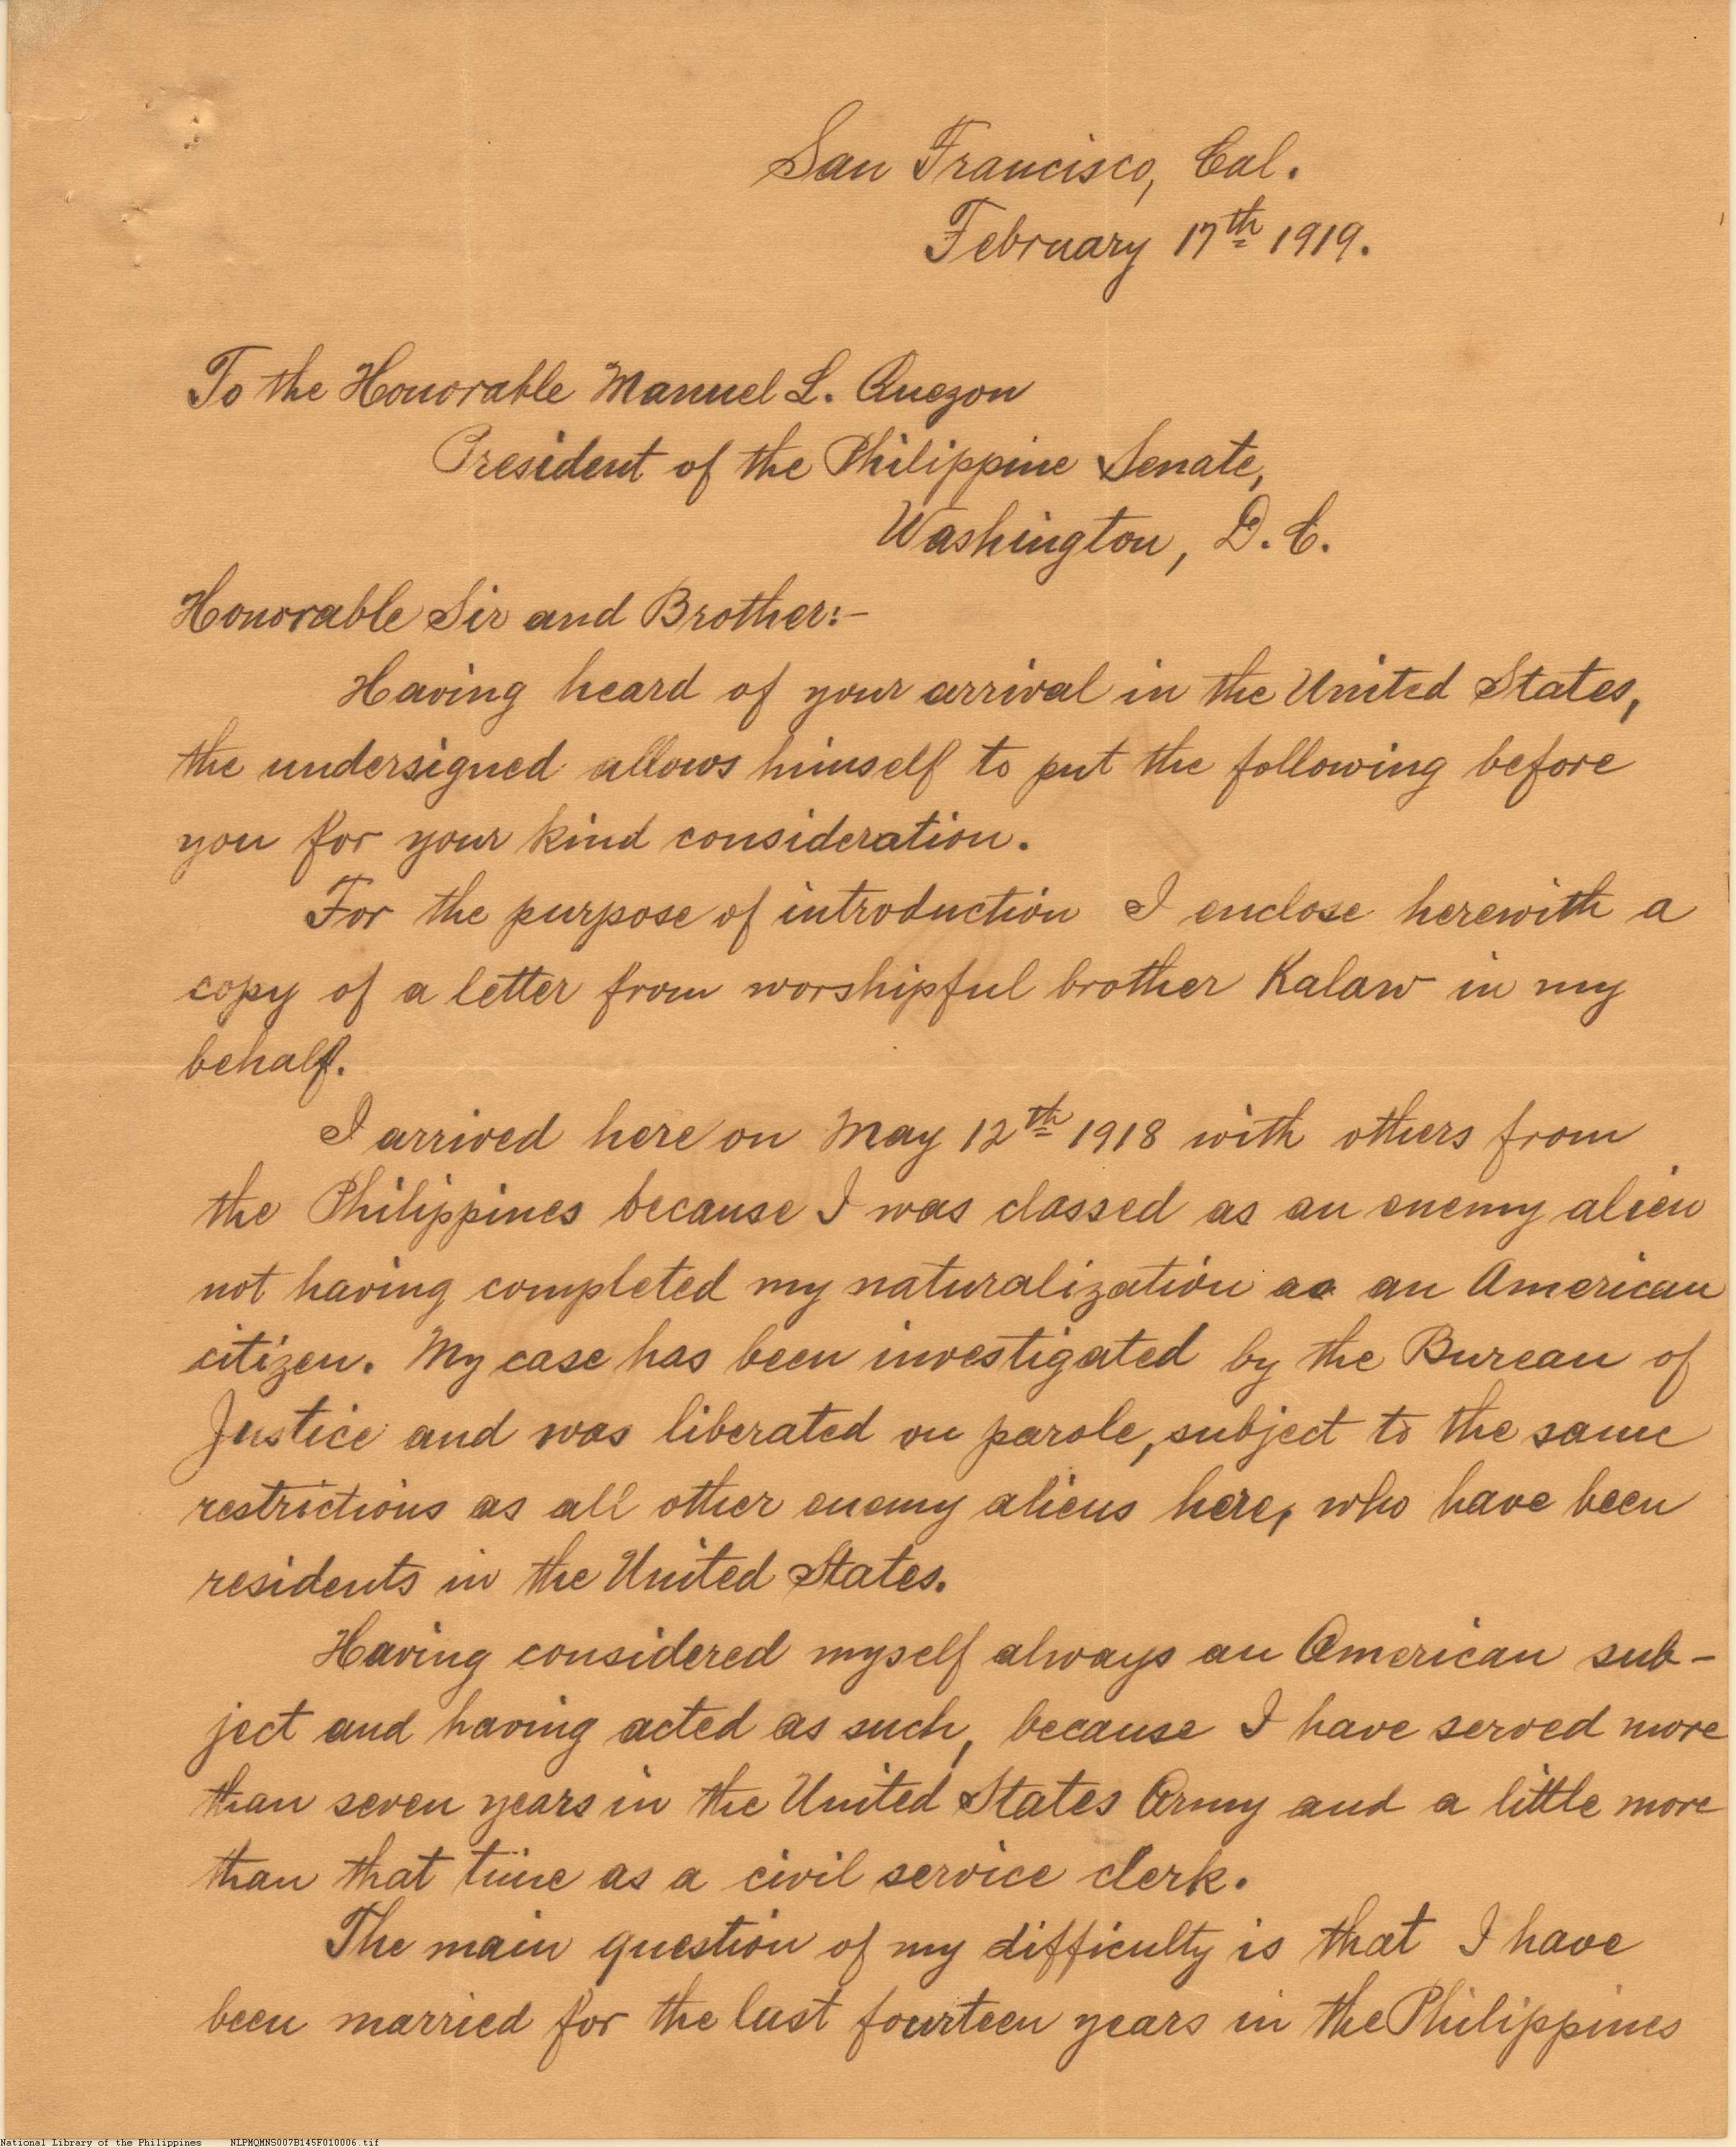 San Francisco, Cal.
February 17th 1919.
To the Honorable Manuel L. Quezon
President of the Philippine Senate,
Washington, D. C.
Honorable Sir and Brother:-
Having heard of your arrival in the United States,
the undersigned allows himself to put the following before
you for your kind consideration.
For the purpose of introduction I enclose herewith a
copy of a letter from worshipful brother Kalaw in my
behalf.
I arrived here on May 12th 1918 with others from
the Philippines because I was classed as an enemy alien
not having completed my naturalization as an American
citizen. My case has been investigated by the Bureau of
Justice and was liberated on parole, subject to the same
restrictions as all other enemy aliens here, who have been
residents in the United States.
Having considered myself always an American sub-
ject and having acted as such, because I have served more
than seven years in the United States Army and a little more
than that time as a civil service clerk.
The main question of my difficulty is that I have
been married for the last fourteen years in the Philippines
National Library of the Philippines NLPMQMNS007B145F010006.tif